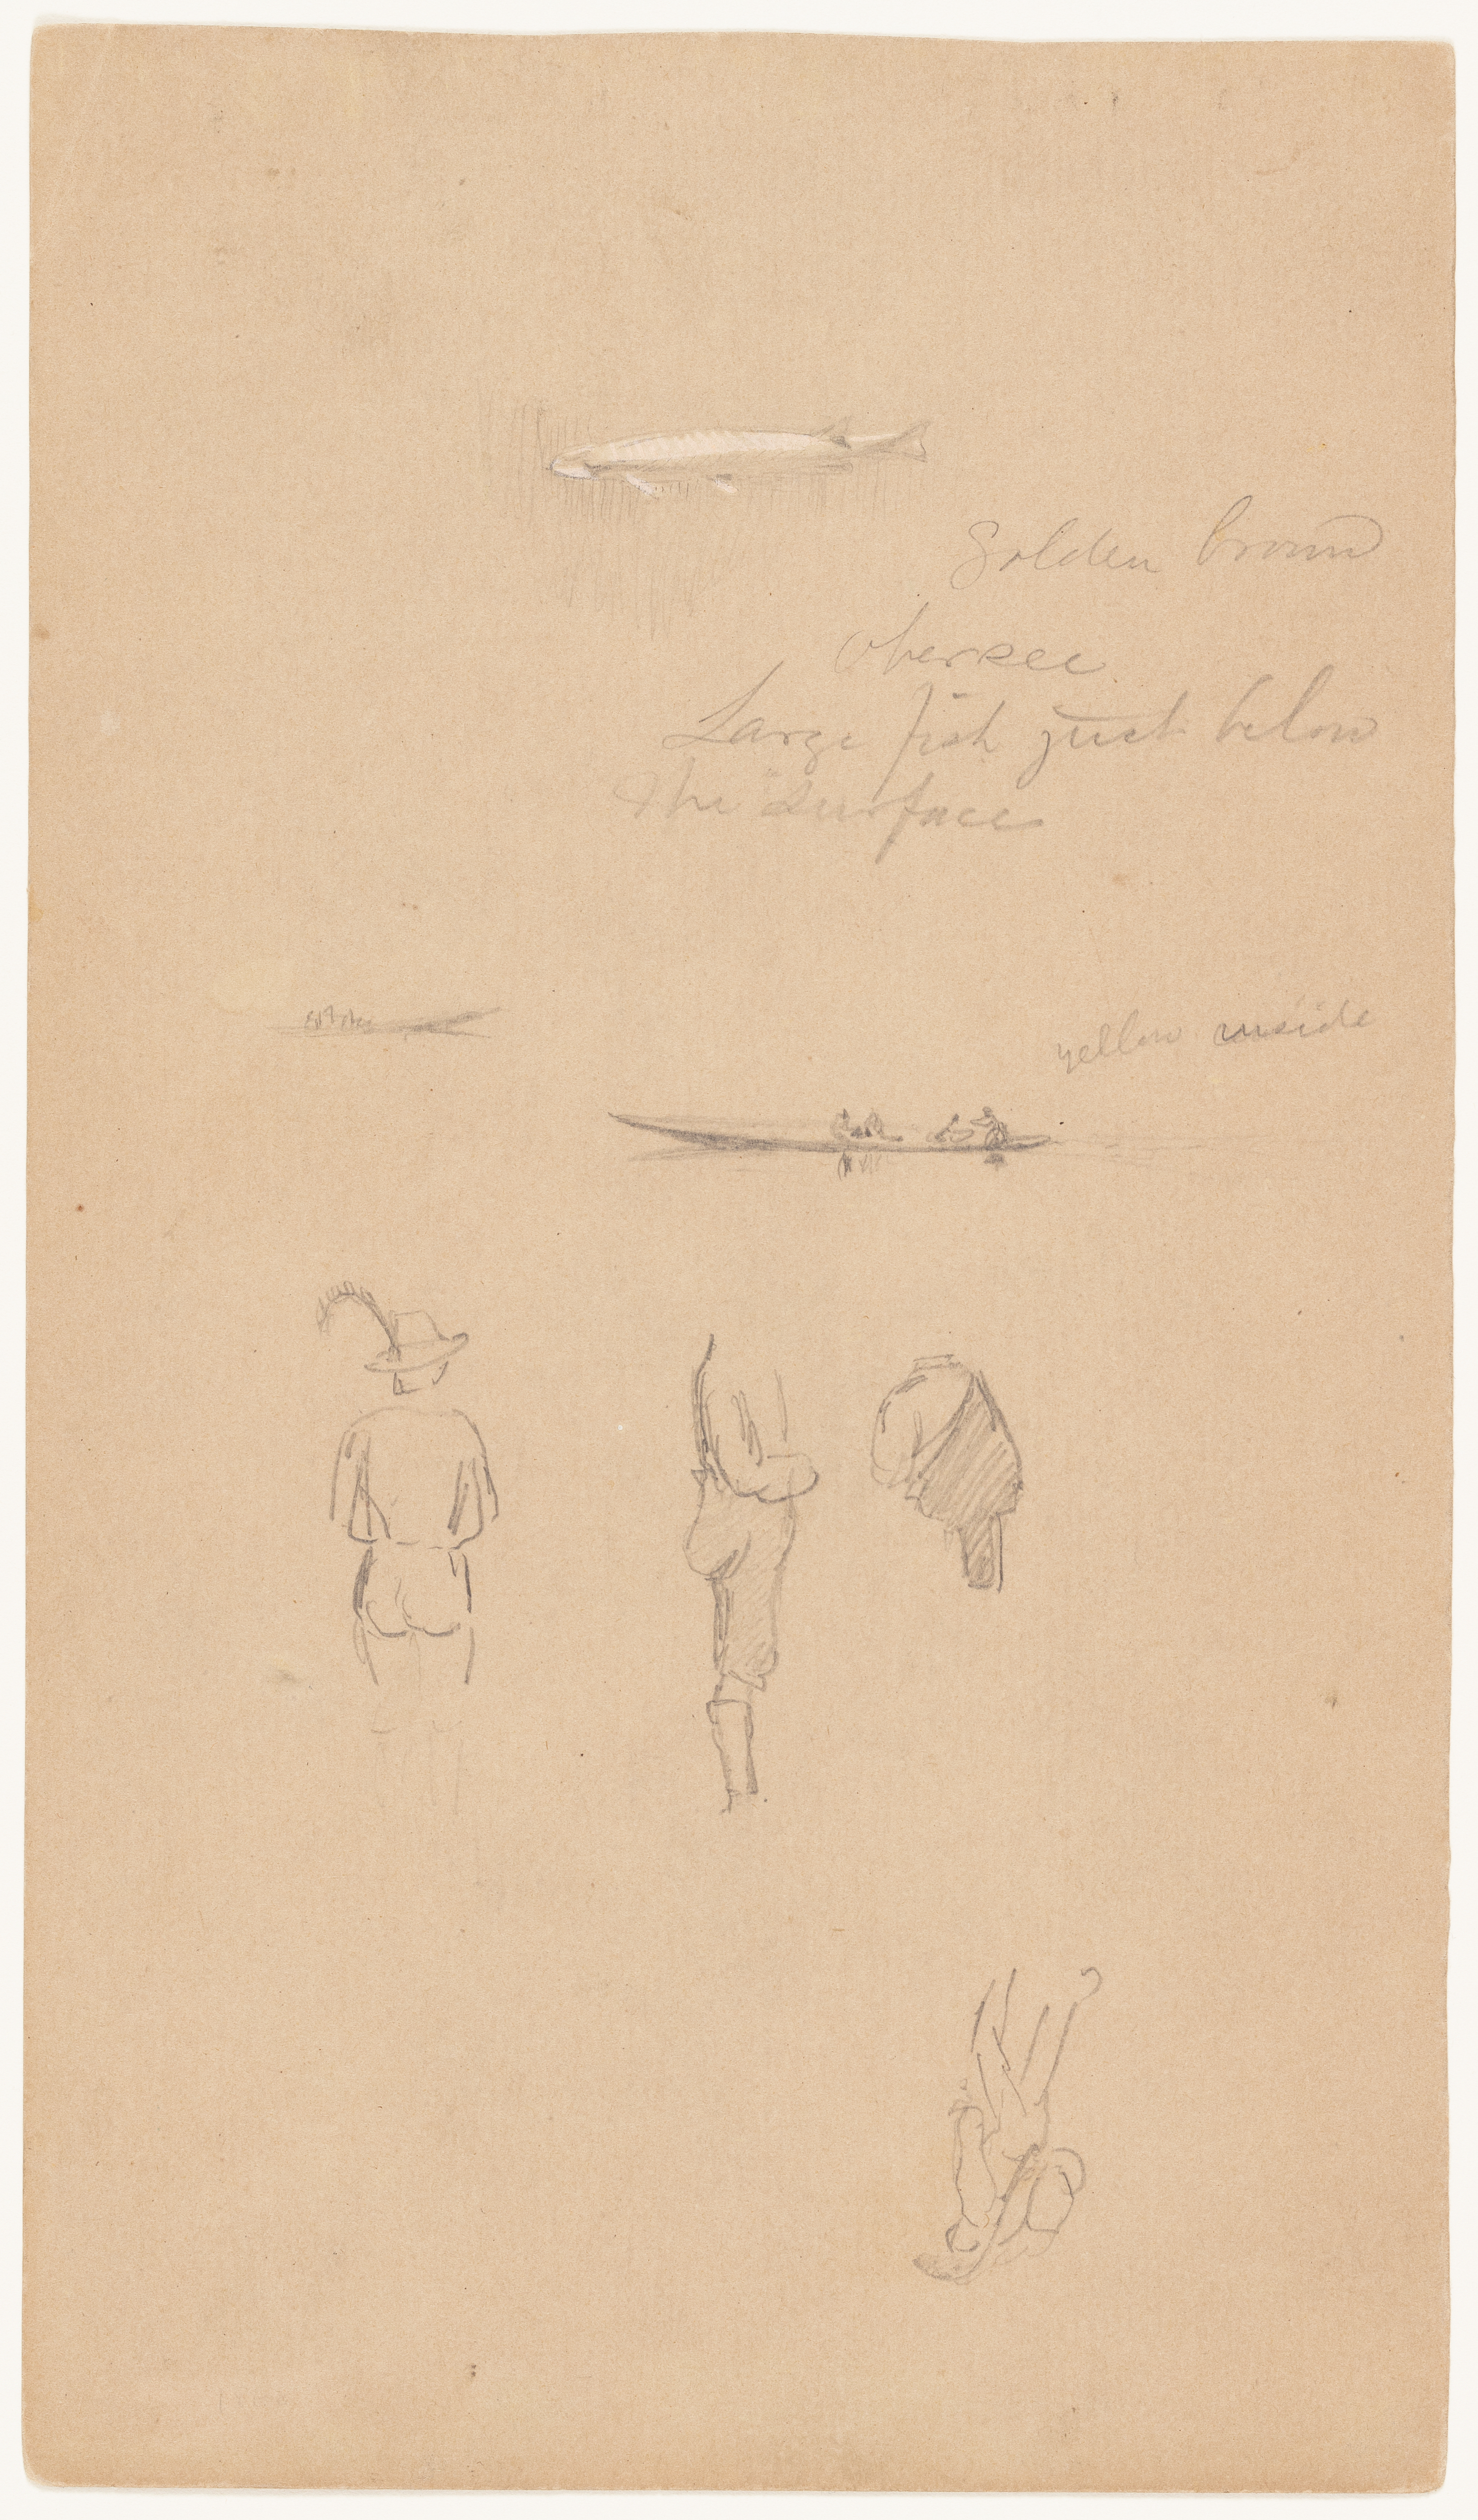 Golden brown
Obersee
Large fish just below
the surface
yellow inside